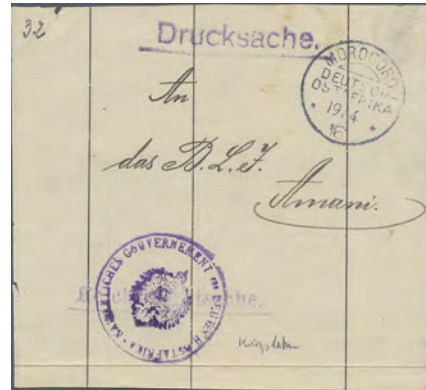 32
Drucksache.
MOROGORO
DEUTSCH-
OSTAFRIKA
1914
16
An
das B.L.I.
Amani.
KAISERLICHES GOUVERNEMENT VON DEUTSCH-OSTAFRIKA